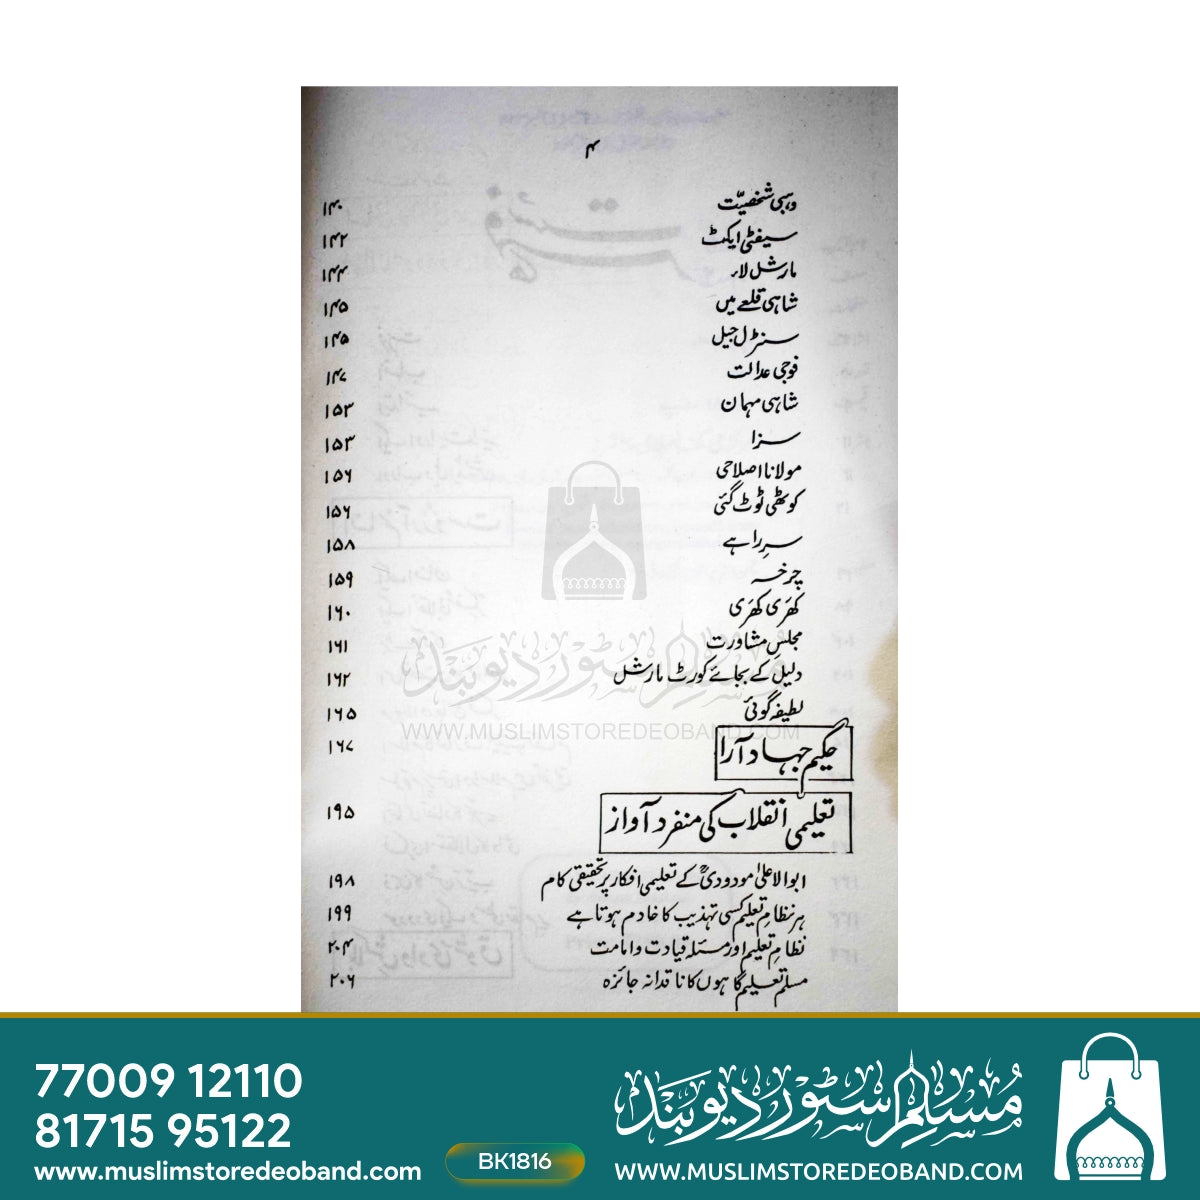 ۴
وہبی شخصیت ۱۴۰
سیفٹی ایکٹ ۱۴۲
مارشل لاء ۱۴۴
شاہی قلعے میں ۱۴۵
سنٹرل جیل ۱۴۵
فوجی عدالت ۱۴۷
شاہی مہمان ۱۵۳
سزا ۱۵۳
مولانا اصلاحی ۱۵۶
کوٹھی ٹوٹ گئی ۱۵۶
سرِ راہے ۱۵۸
چرخہ ۱۵۹
کھَری کھَری ۱۶۰
مجلسِ مشاورت ۱۶۱
دلیل کے بجائے کورٹ مارشل ۱۶۲
لطیفہ گوئی ۱۶۵
حکیم جہاد آرا ۱۶۷
تعلیمی انقلاب کی منفرد آواز ۱۹۵
ابوالاعلیٰ مودودیؒ کے تعلیمی افکار پر تحقیقی کام ۱۹۸
ہر نظامِ تعلیم کسی تہذیب کا خادم ہوتا ہے ۱۹۹
نظامِ تعلیم اور مسئلہ قیادت و امامت ۲۰۴
مسلم تعلیم گاہوں کا ناقدانہ جائزہ ۲۰۶
مسلم سٹور دیوبند
WWW.MUSLIMSTOREDEOBAND.COM
77009 12110
81715 95122
www.muslimstoredeoband.com
BK1816
مُسلم سٹور دیوبند
WWW.MUSLIMSTOREDEOBAND.COM